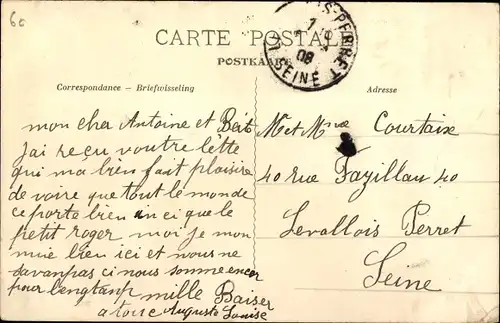 60
CARTE POSTALE
POSTKAART
S-PERRET
08
SEINE
Correspondance – Briefwisseling
Adresse
mon cher Antoine et
Jai reçu voutre lette
qui ma bien fait plaisire
de voire que tout le monde
ce porte bien ici que le
petit roger moi je mon
nuie bien ici et nous ne
savanpas ci nous somme encor
pour lengtanp mille Baiser
a touse Auguste Louise
M et Mme Courtaix
40 rue Fazillau 40
Levallois Perret
Seine